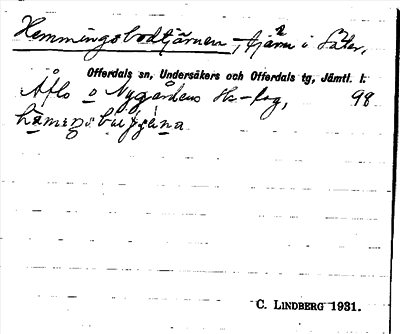 Hemmingsbodtjärnen, tjärn i Säter,
Offerdals sn, Undersåkers och Offerdals tg, Jämtl. l.
Åflo o Nygårdens Hs-lag, 98
C. LINDBERG 1931.